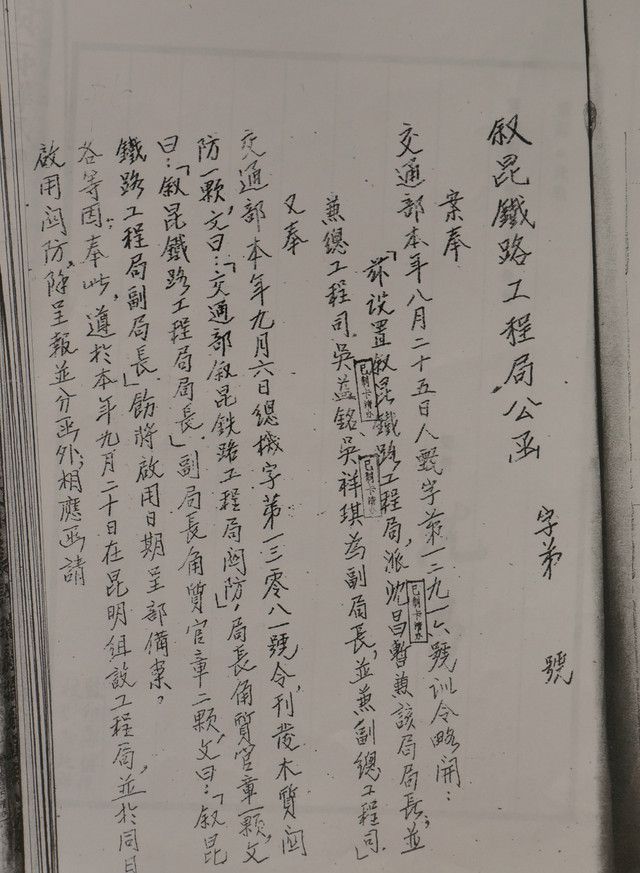 字第　　號
叙昆鐵路工程局公函
案奉
交通部本年八月二十五日人甄字第一二九一六號訓令略開：
「茲設置叙昆鐵路工程局，派沈昌暫兼該局局長，並
兼總工程司。吳益銘、吳祥琪為副局長，並兼副總工程司」
又奉
交通部本年九月六日總機字第一三零八一號令，刊發木質関
防一顆，文曰：「交通部叙昆鉄路工程局関防」，局長角質官章一顆，文
曰：「叙昆鐵路工程局局長」副局長角質官章二顆，文曰：「叙昆
鐵路工程局副局長」飭將啟用日期呈部備案，
各等因；奉此，遵於本年九月二十日在昆明組設工程局，並於同日
啟用関防，除呈報並分函外，相應函請